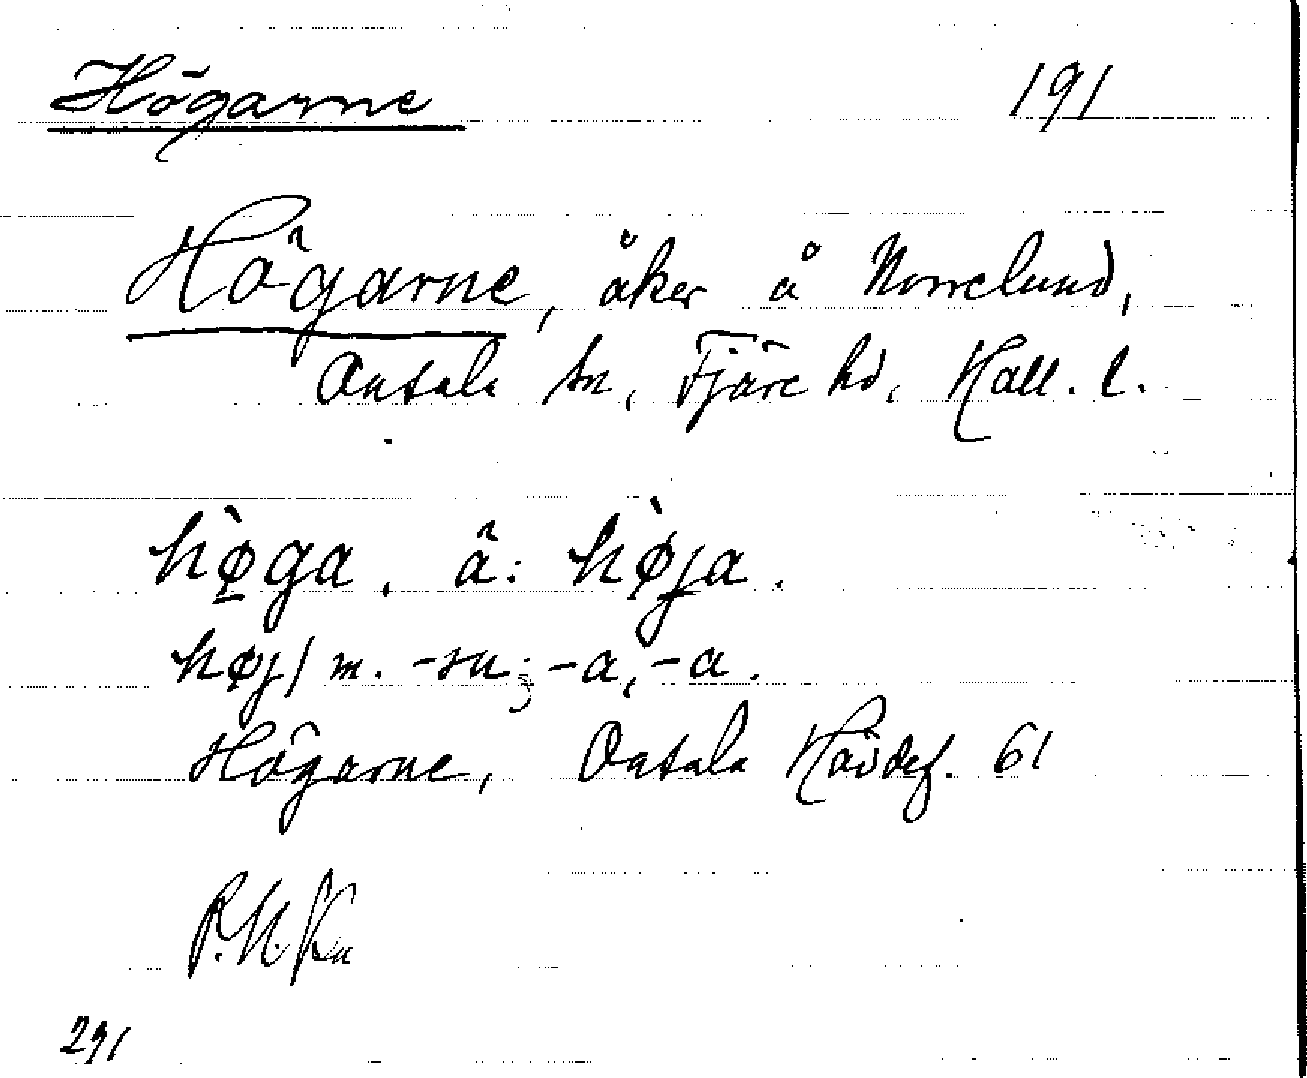 Högarne 191
Högarne, åker å Norrelund,
Onsala sn, Fjäre hd, Hall. l.
hø̀ga. ä: hø̀ja.
høj/ m. -sn; -a, -a.
Högarne, Onsala Hävdef. 61
P.N.Kn
291